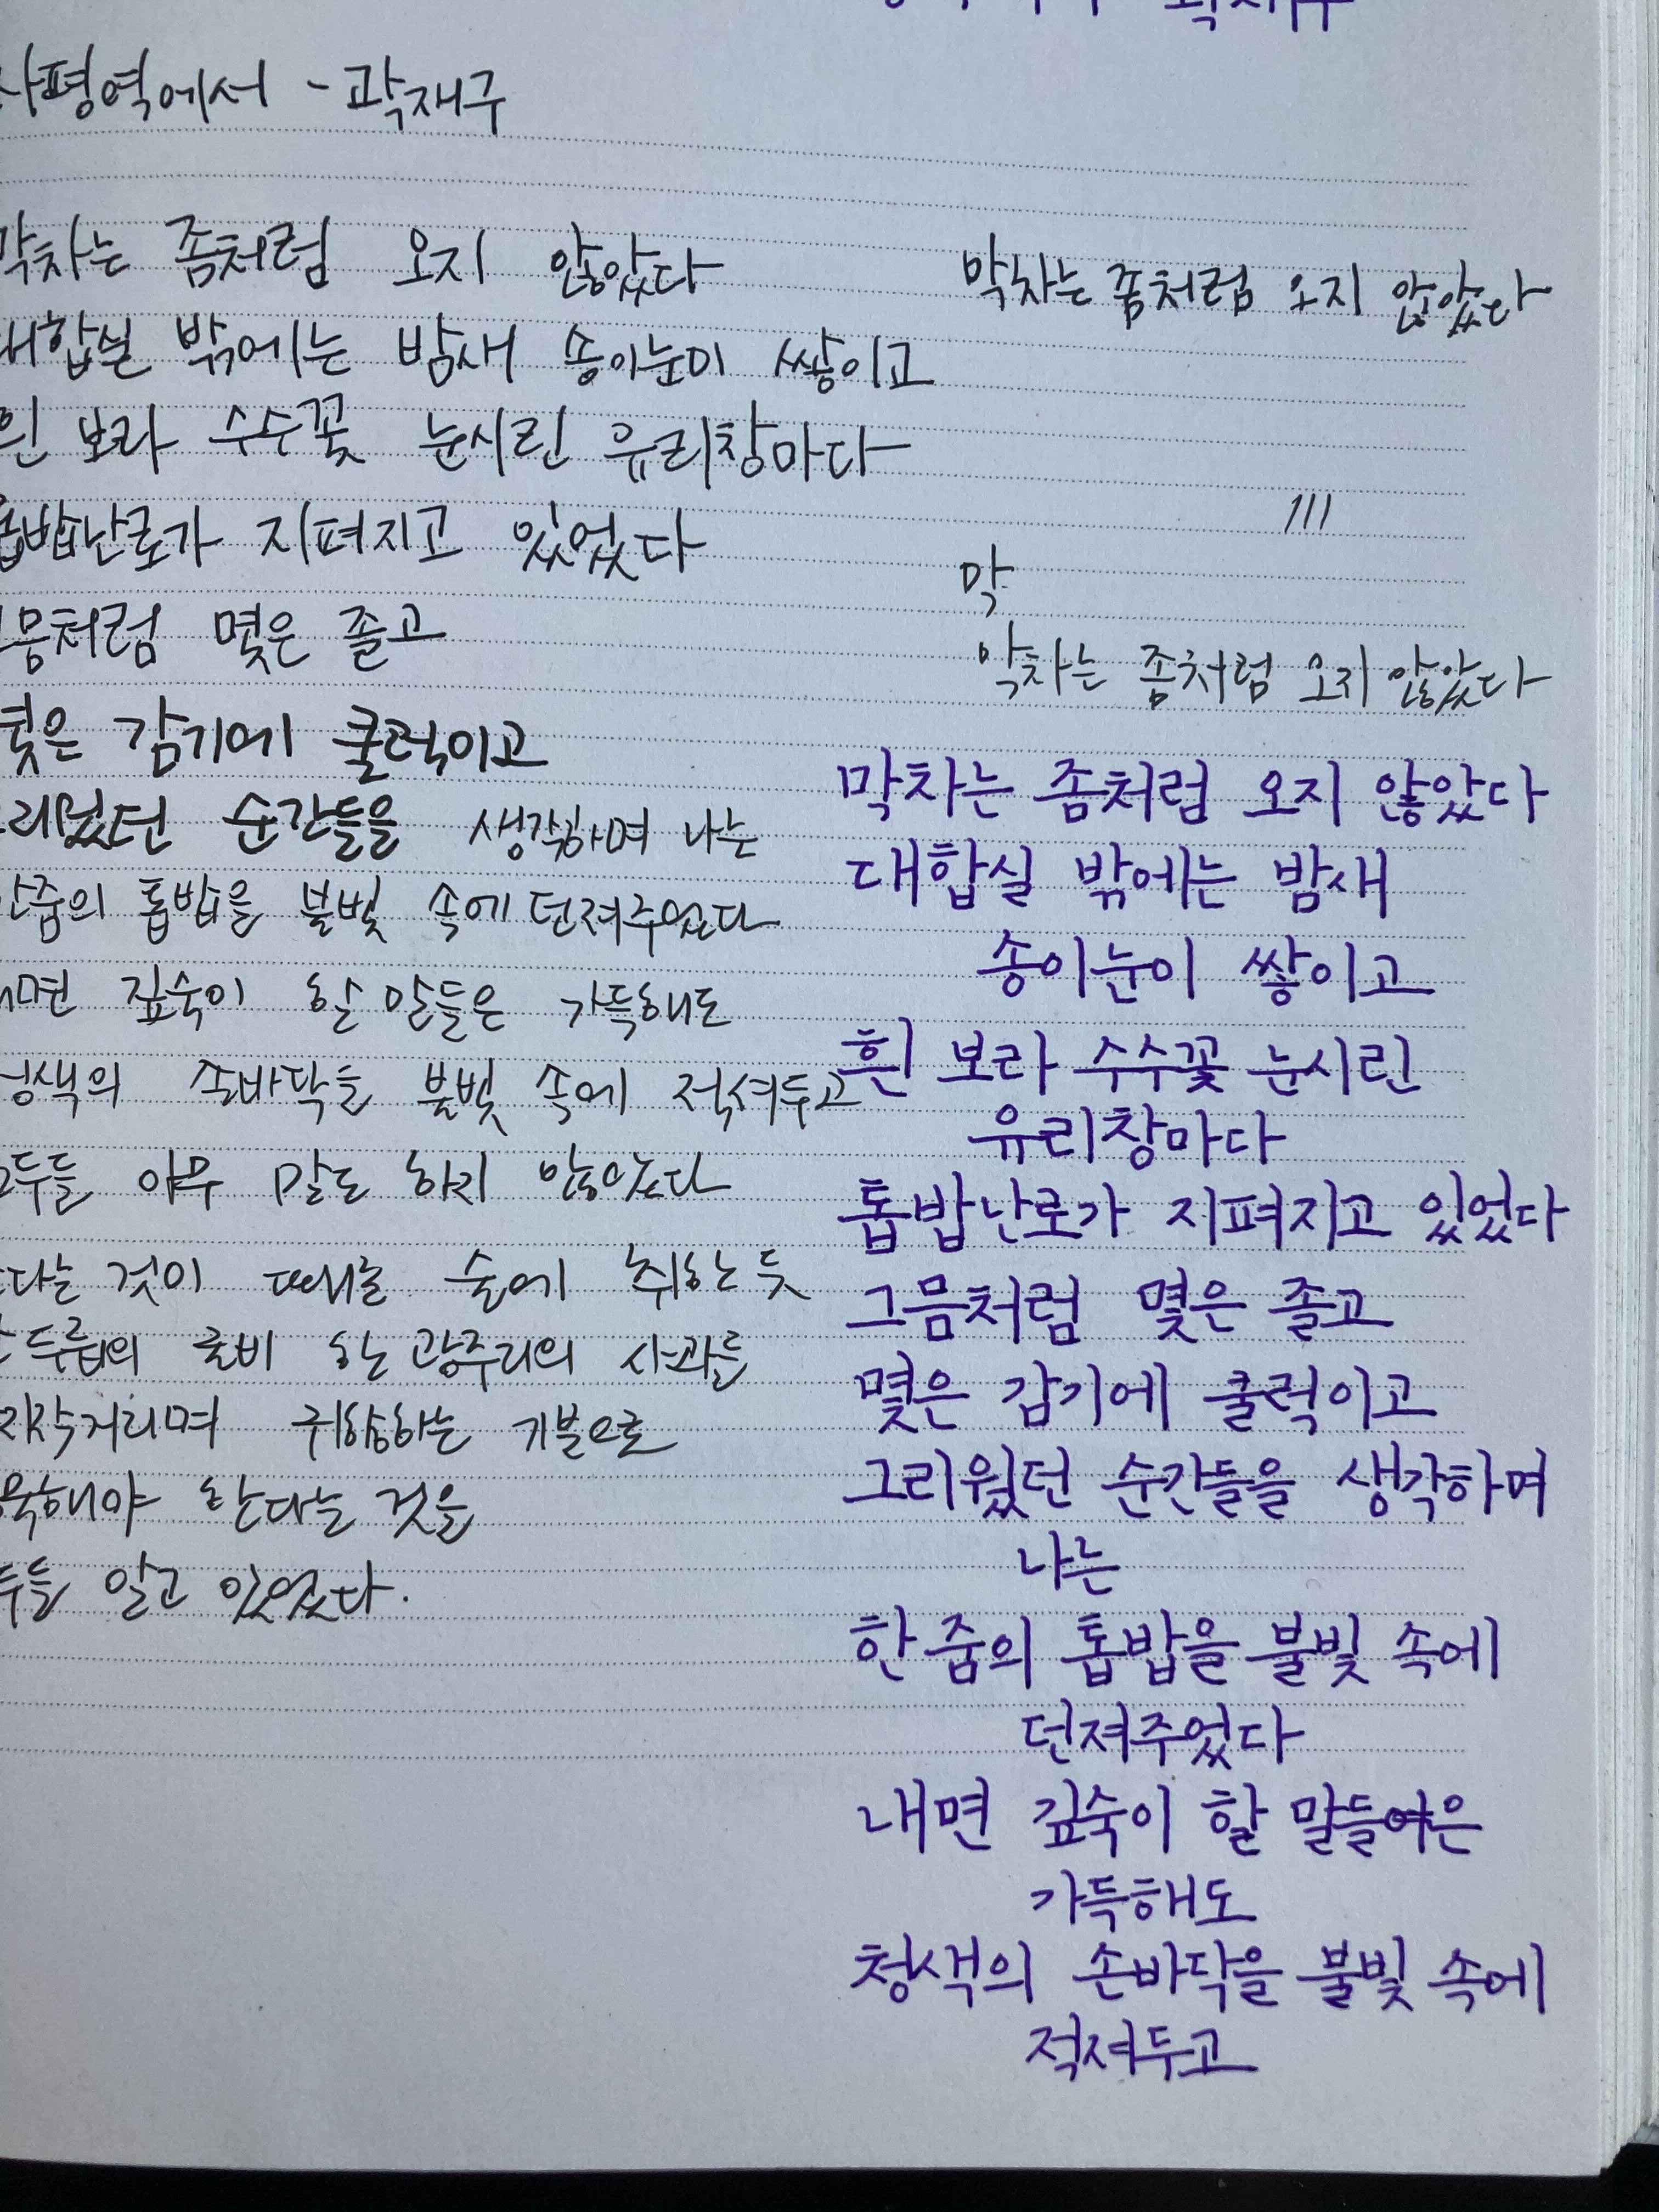 곽재구
사평역에서 - 곽재구
막차는 좀처럼 오지 않았다
대합실 밖에는 밤새 송이눈이 쌓이고
흰 보라 수수꽃 눈시린 유리창마다
톱밥난로가 지펴지고 있었다
그믐처럼 몇은 졸고
몇은 감기에 쿨럭이고
그리웠던 순간들을 생각하며 나는
한줌의 톱밥을 불빛 속에 던져주었다
내면 깊숙이 할 말들은 가득해도
청색의 손바닥을 불빛 속에 적셔두고
모두들 아무 말도 하지 않았다
산다는 것이 때때로 술에 취한 듯
한 두릅의 굴비 한 광주리의 사과를
만지작거리며 귀향하는 기분으로
침묵해야 한다는 것을
모두들 알고 있었다.
막차는 좀처럼 오지 않았다
111
막
막차는 좀처럼 오지 않았다
막차는 좀처럼 오지 않았다
대합실 밖에는 밤새
송이눈이 쌓이고
흰 보라 수수꽃 눈시린
유리창마다
톱밥난로가 지펴지고 있었다
그믐처럼 몇은 졸고
몇은 감기에 쿨럭이고
그리웠던 순간들을 생각하며
나는
한 줌의 톱밥을 불빛 속에
던져주었다
내면 깊숙이 할 말들은
가득해도
청색의 손바닥을 불빛 속에
적셔두고